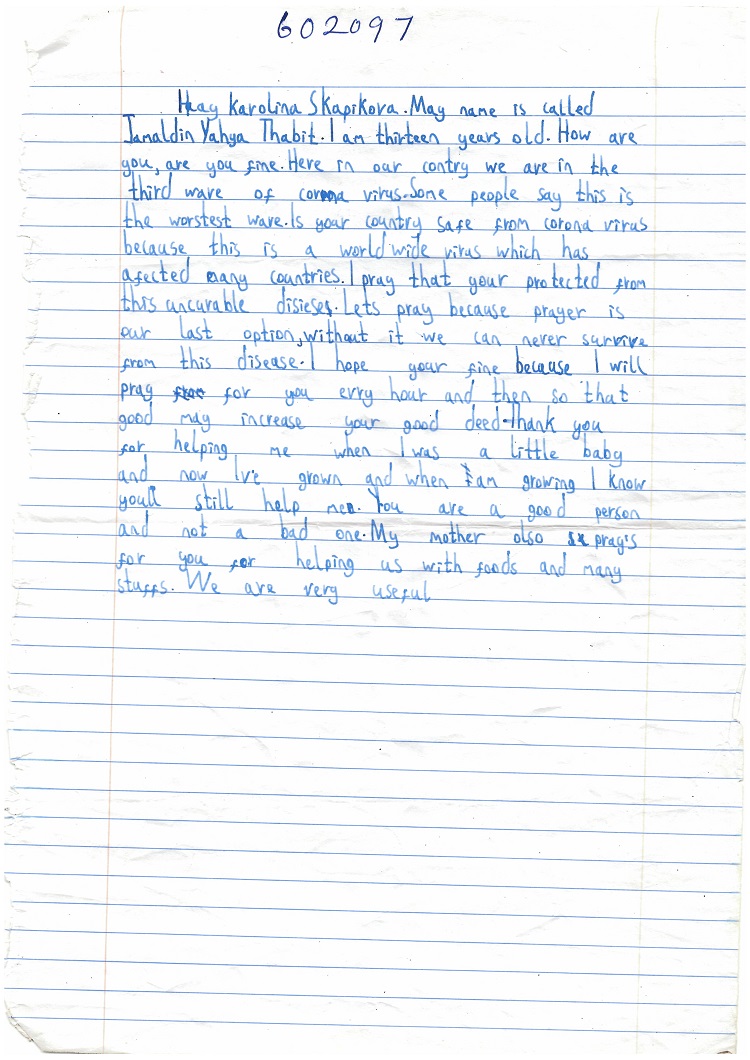 602097
Haay Karolina Skapikova. May name is called
Jamaldin Yahya Thabit. I am thirteen years old. How are
you, are you fine. Here in our contry we are in the
third wave of corona virus. Some people say this is
the worstest wave. Is your country safe from corona virus
because this is a world wide virus which has
afected many countries. I pray that your protected from
this uncurable disieses. Lets pray because prayer is
our last option, without it we can never survive
from this disease. I hope your fine because I will
pray for you evry hour and then so that
good may increase your good deed. Thank you
for helping me when I was a little baby
and now I've grown and when I am growing I know
youll still help me. You are a good person
and not a bad one. My mother olso pray's
for you for helping us with foods and many
stuffs. We are very useful